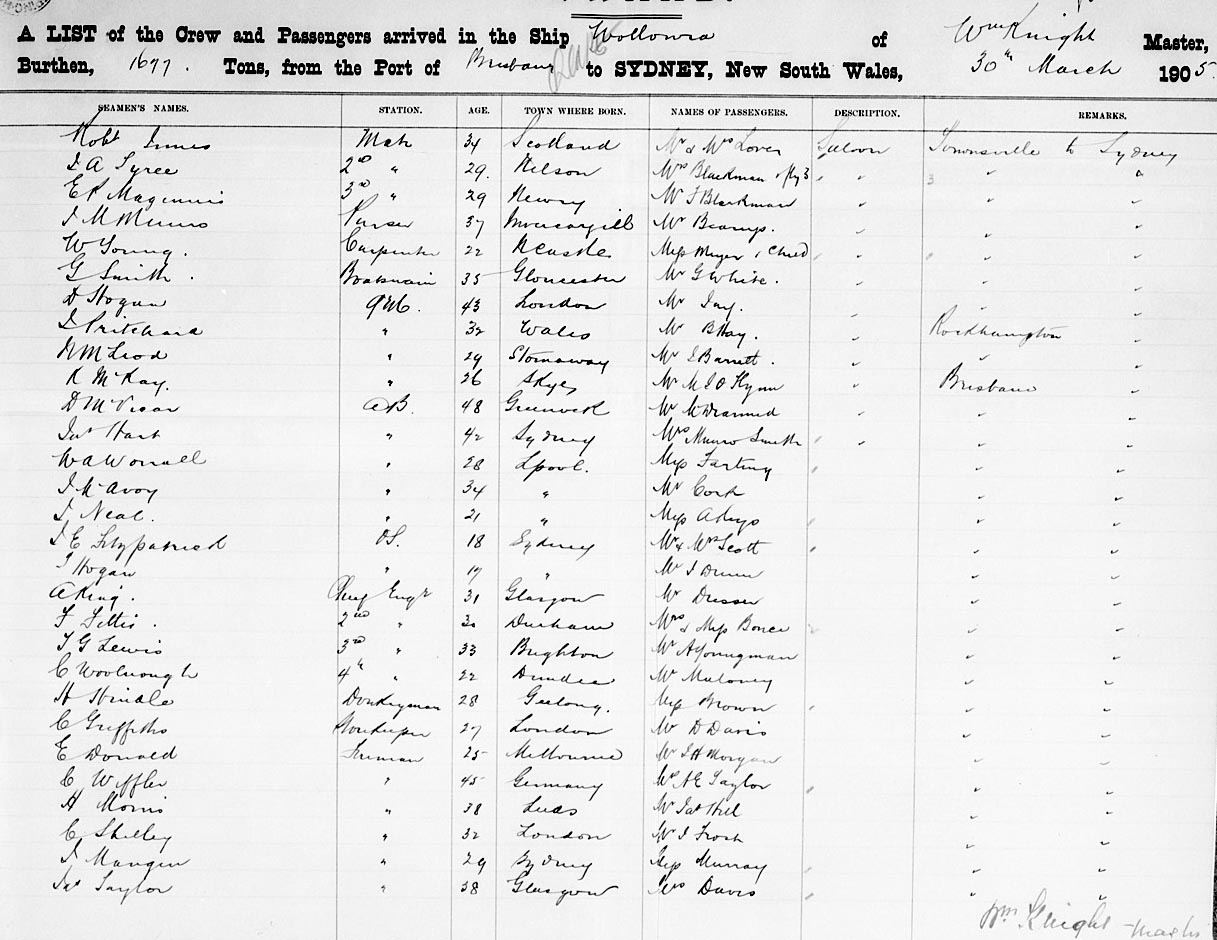 A LIST of the Crew and Passengers arrived in the Ship Wollowra of Wm Knight Master,
Burthen, 1677. Tons, from the Port of Brisbane to SYDNEY, New South Wales, 30th March 1905
SEAMEN'S NAMES. STATION. AGE. TOWN WHERE BORN. NAMES OF PASSENGERS. DESCRIPTION. REMARKS.
Robt Innes Mate 34 Scotland Mr & Mrs Lover Saloon Townsville to Sydney
2nd " 29. Nelson Mrs Blackman 3 " " 3 " "
3rd " 29 Newry Mr F Blackman " " "
J M Munro Purser 37 Invercargill Mr " " "
W Young. Carpenter 22 NCastle Miss Meyer 1 Child " " "
G Smith. Boatswain 35 Gloucester Mr G White. " " "
D Hogan 43 London Mr Jay. " " "
J Pritchard " 32 Wales Mr B Hay. " Rockhampton "
N McLeod " 29 Stornaway Mr E Barrett. " " "
K McKay. " 26 Skye Mr M J O Flynn " Brisbane "
D McVicar AB. 48 Greenock Mr " " "
Jas Hart " 42 Sydney Mrs Munro Smith " " "
W A Worrall " 28 Lpool. Miss " "
J McAvoy " 34 " Mr Cork " "
J Neal. " 21 " Miss " "
J E Fitzpatrick OS. 18 Sydney Mr & Mrs Scott " "
J Hogan " 17 " Mr J Dunn " "
A King. Chief Engr 31 Glasgow Mr Dresser " "
F Fettis. 2nd " 30 Durham Mrs & Miss Bonce " "
T G Lewis 3rd " 33 Brighton Mr A Youngman " "
C Woolnough 4th " 22 Dundee Mr Maloney " "
H Hindle Donkeyman 28 Geelong. Miss Brown " "
C Griffiths Storekeeper 27 London Mr D Davis " "
E Donald Fireman 25 Melbourne Mr J H Morgan " "
C Wiffler " 45 Germany Mrs A E Taylor " "
H Morris " 38 Leeds Mr Jas Hill " "
C Shelley " 32 London Mr J Frost " "
J Mangin " 29 Sydney Miss Murray " "
Jas Taylor " 38 Glasgow Mrs Davis " "
Wm Knight Master